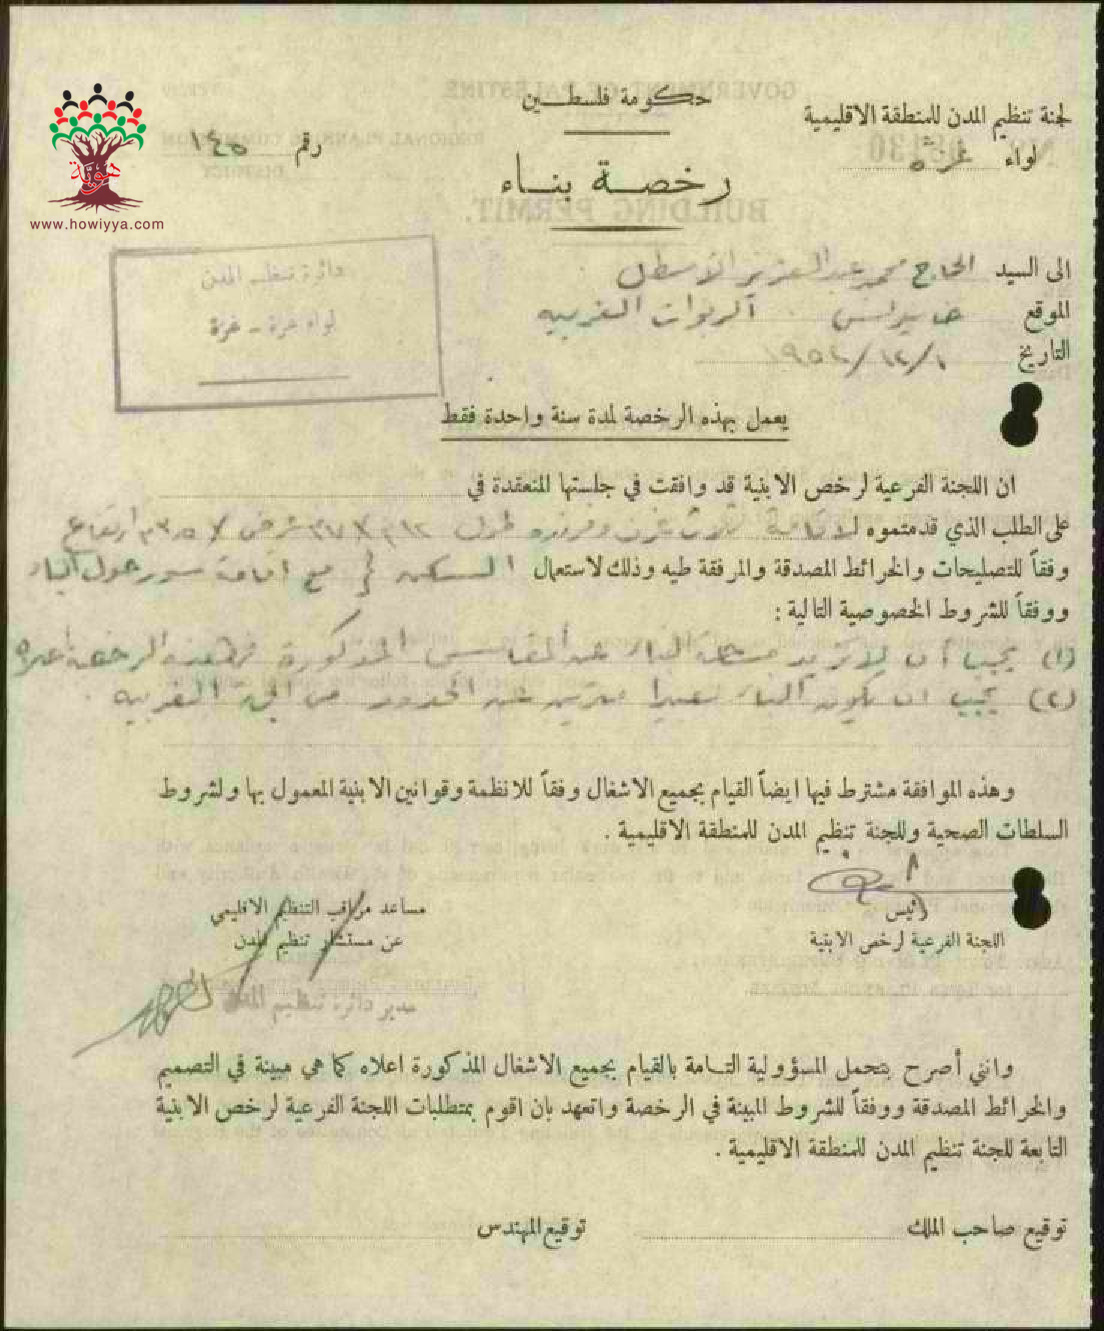 حكومة فلسطين
لجنة تنظيم المدن للمنطقة الاقليمية
لواء غزة
رقم ١٤٥
رخصة بناء
هوية
www.howiyya.com
دائرة تنظيم المدن
لواء غزة - غزة
الى السيد الحاج محمد عبد العزيز الاسطل
الموقع خانيونس الربوات الغربيه
التاريخ ١/١٢/١٩٥٢
يعمل بهذه الرخصة لمدة سنة واحدة فقط
ان اللجنة الفرعية لرخص الابنية قد وافقت في جلستها المنعقدة في
على الطلب الذي قدمتموه لاقامة ثلاث غرف طول عرض ارتفاع
وفقاً للتصليحات والخرائط المصدقة والمرفقة طيه وذلك لاستعمال السكن مع اقامة سور حول البناء
ووفقاً للشروط الخصوصية التالية :
(١) يجب أن لا تزيد مساحة البناء عن المقاييس المذكورة في هذه الرخصة اعلاه
(٢) يجب ان يكون البناء بعيدا مترين عن الحدود من الجهة الغربيه .
وهذه الموافقة مشترط فيها ايضاً القيام بجميع الاشغال وفقاً للانظمة وقوانين الابنية المعمول بها ولشروط
السلطات الصحية وللجنة تنظيم المدن للمنطقة الاقليمية .
رئيس
اللجنة الفرعية لرخص الابنية
مساعد مراقب التنظيم الاقليمي
عن مستشار تنظيم المدن
مدير دائرة تنظيم المدن
وانني أصرح بتحمل المسؤولية التامة بالقيام بجميع الاشغال المذكورة اعلاه كما هي مبينة في التصميم
والخرائط المصدقة ووفقاً للشروط المبينة في الرخصة واتعهد بان اقوم بمتطلبات اللجنة الفرعية لرخص الابنية
التابعة للجنة تنظيم المدن للمنطقة الاقليمية .
توقيع صاحب الملك
توقيع المهندس